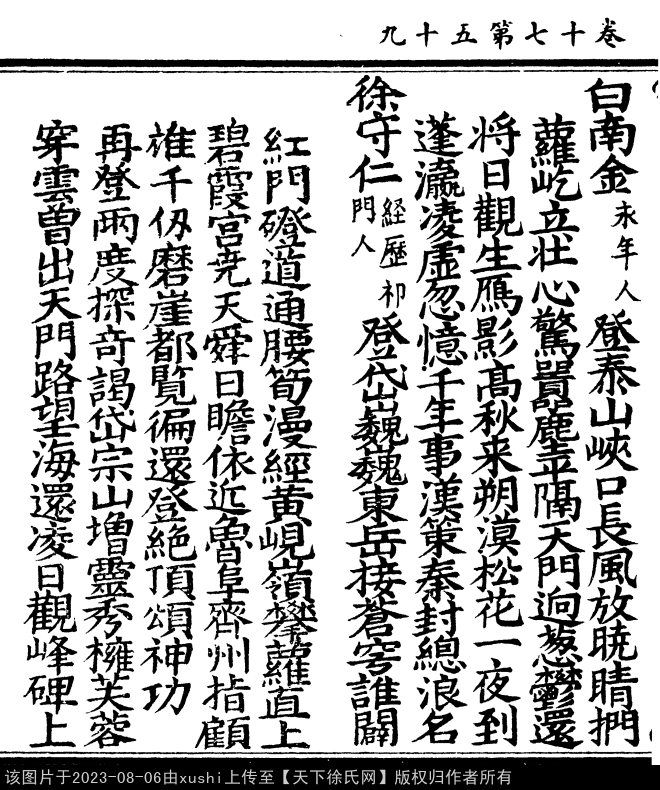 卷十七第五十九
白南金 永年人 登泰山峽口長風放曉晴捫
蘿屹立壮心驚嚣麗亭隔天門逈葱鬱還
将日觀生鴈影高秋来朔漠松花一夜到
蓬瀛凌虚忽憶千年事漢策秦封總浪名
徐守仁 経歷祁門人 登岱巍巍東岳接蒼穹誰闢
紅門磴道通腰笱漫經黄峴嶺攀蘿直上
碧霞宫尭天舜日瞻依近魯阜齊州指顧
雄千仭磨崖都覽徧還登絶頂頌神功
再登兩度探竒謁岱宗山增靈秀擁芙蓉
穿雲曽出天門路望海還凌日觀峰碑上
该图片于2023-08-06由xushi上传至【天下徐氏网】版权归作者所有